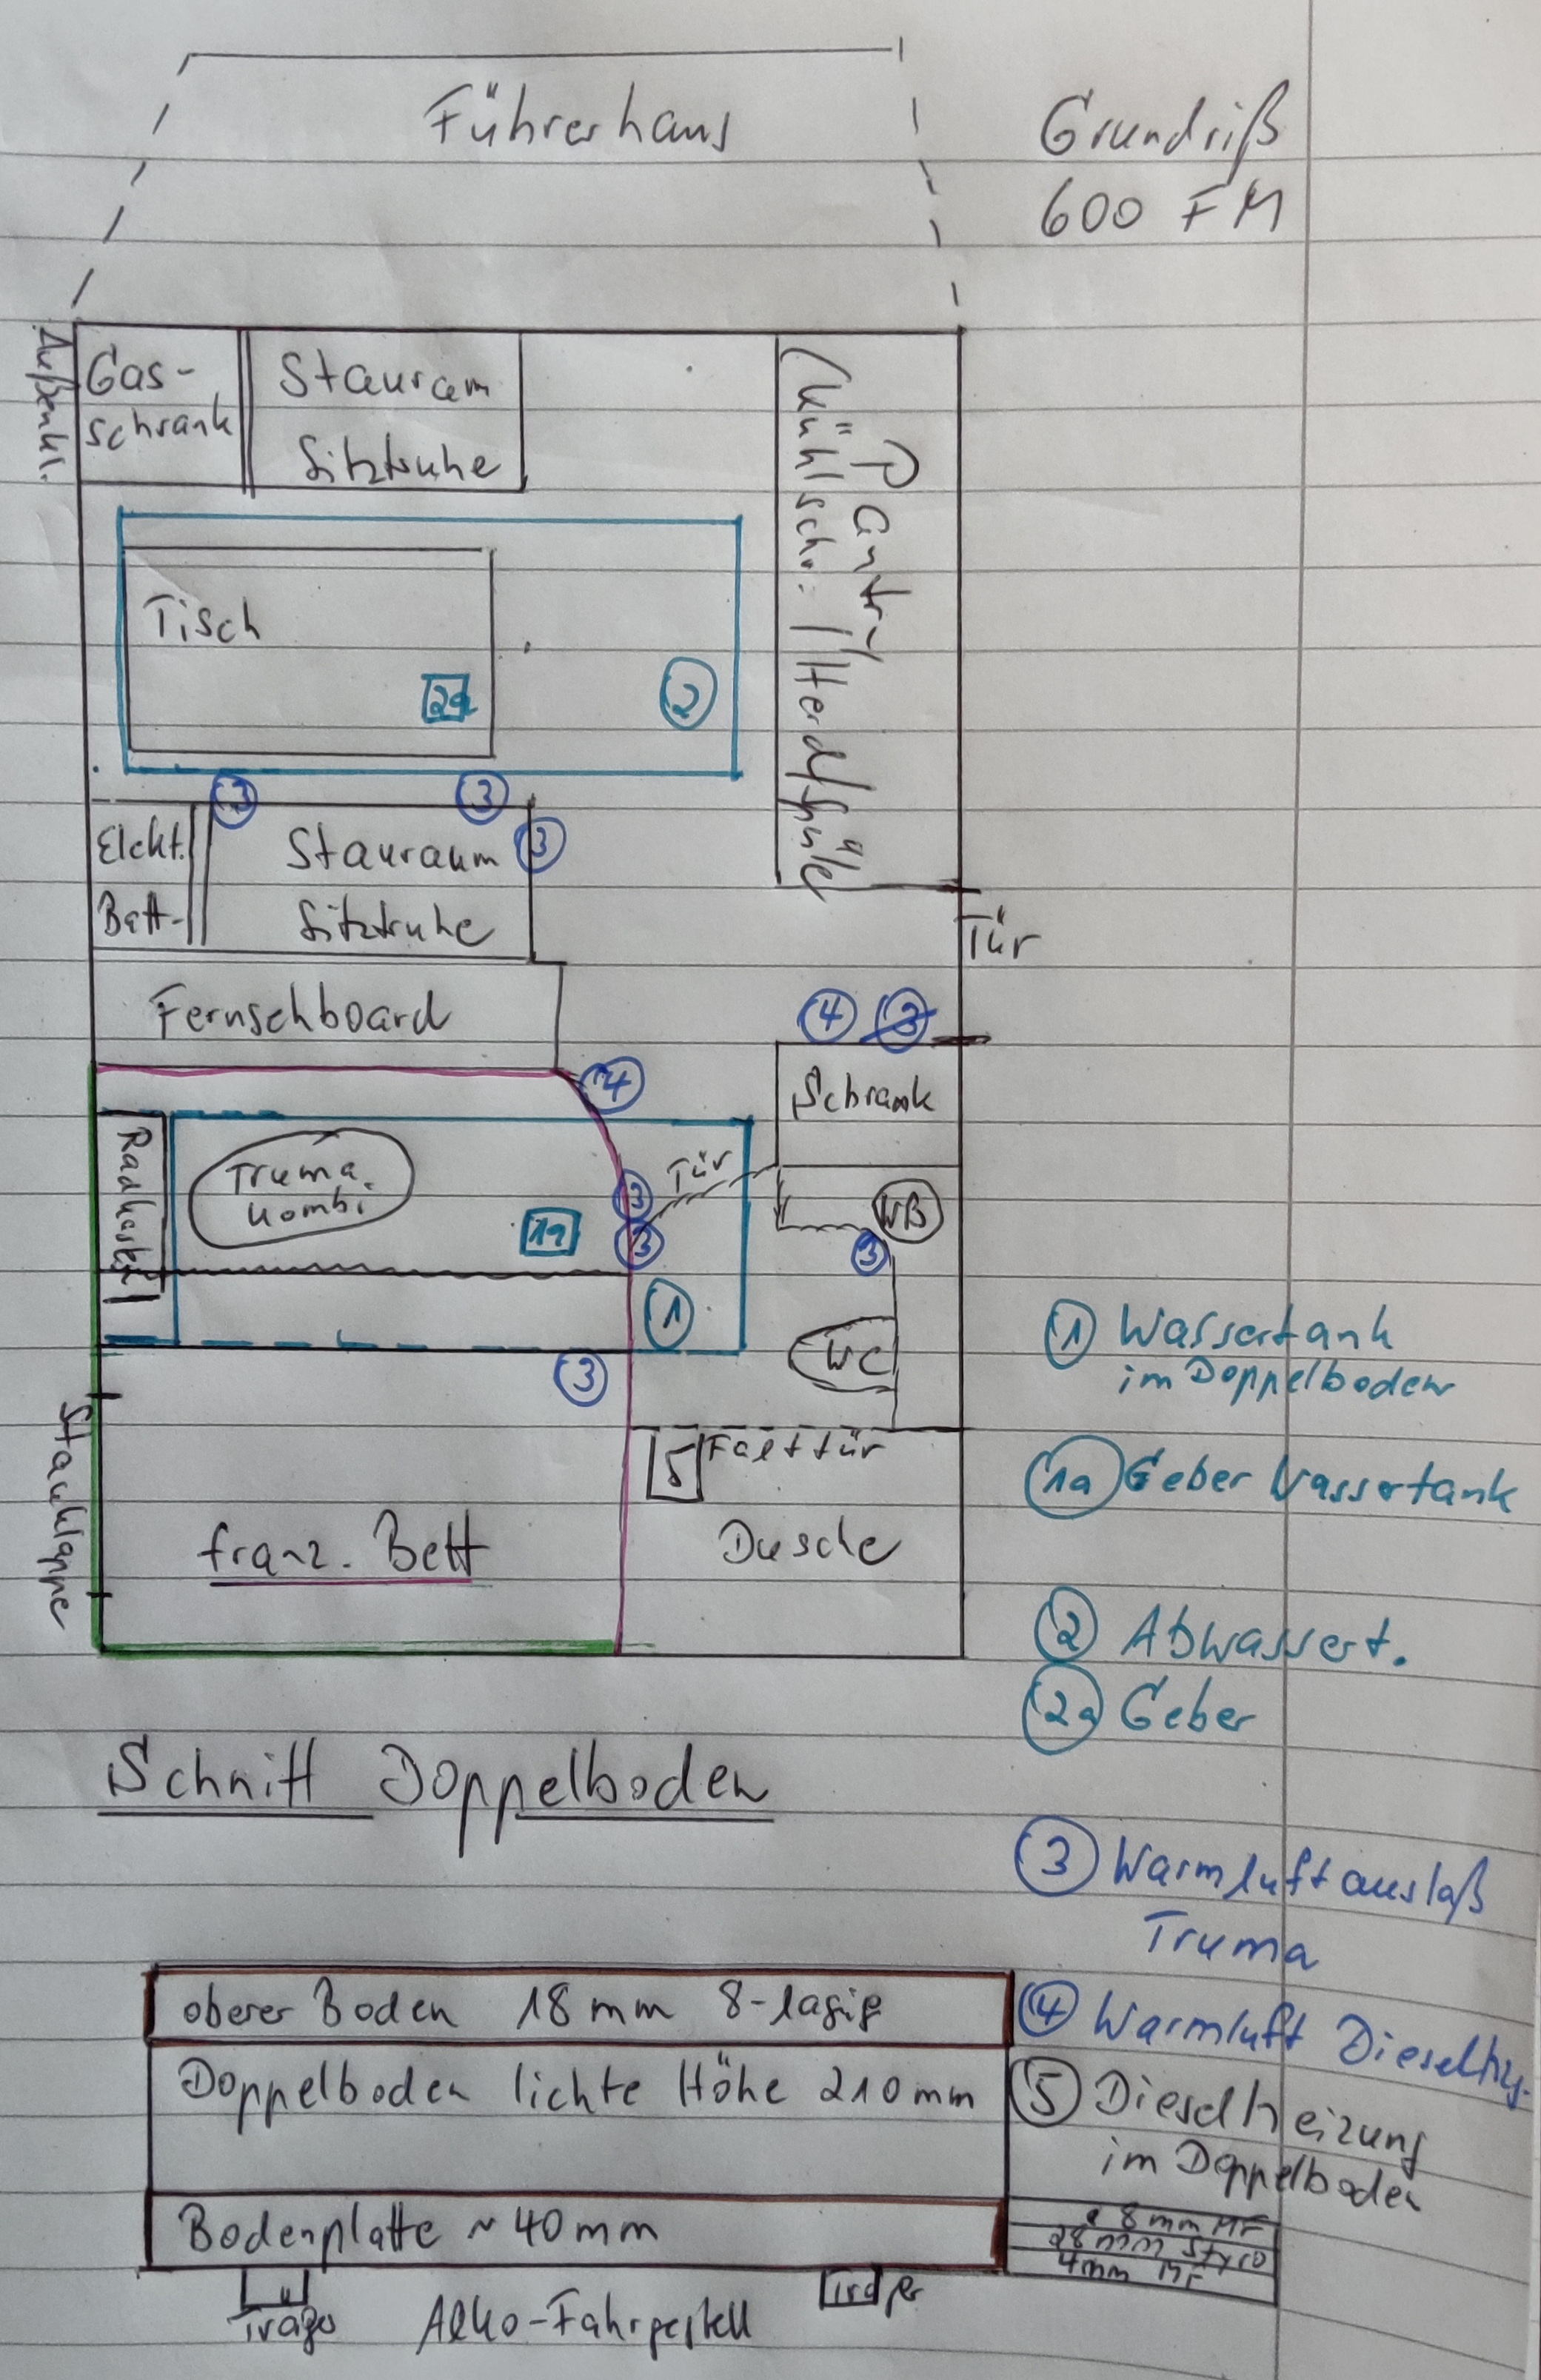 Führerhaus
Grundriß
600 FM
Außenkl.
Gas-
schrank
Stauram
Sitztruhe
Pantry
(Kühlschr. / Herd / Spüle
Tisch
2a
2
3
3
3
Elekt.
Batt-
Stauraum
Sitztruhe
Tür
Fernsehboard
4
3
4
Schrank
Radkasten
Truma
Kombi
Tür
1a
3
3
WB
3
1
WC
3
5
Falttür
Stauklappe
franz. Bett
Dusche
1 Wassertank
im Doppelboden
1a Geber Wassertank
2 Abwassert.
2a Geber
Schnitt Doppelboden
3 Warmluftauslaß
Truma
oberer Boden 18mm 8-lagig
4 Warmluft Dieselhzg.
Doppelboden lichte Höhe 210mm
5 Dieselheizung
im Doppelboden
Bodenplatte ~ 40mm
8mm MF
28mm Styro
4mm MF
Träger
Alko-Fahrgestell
Träger